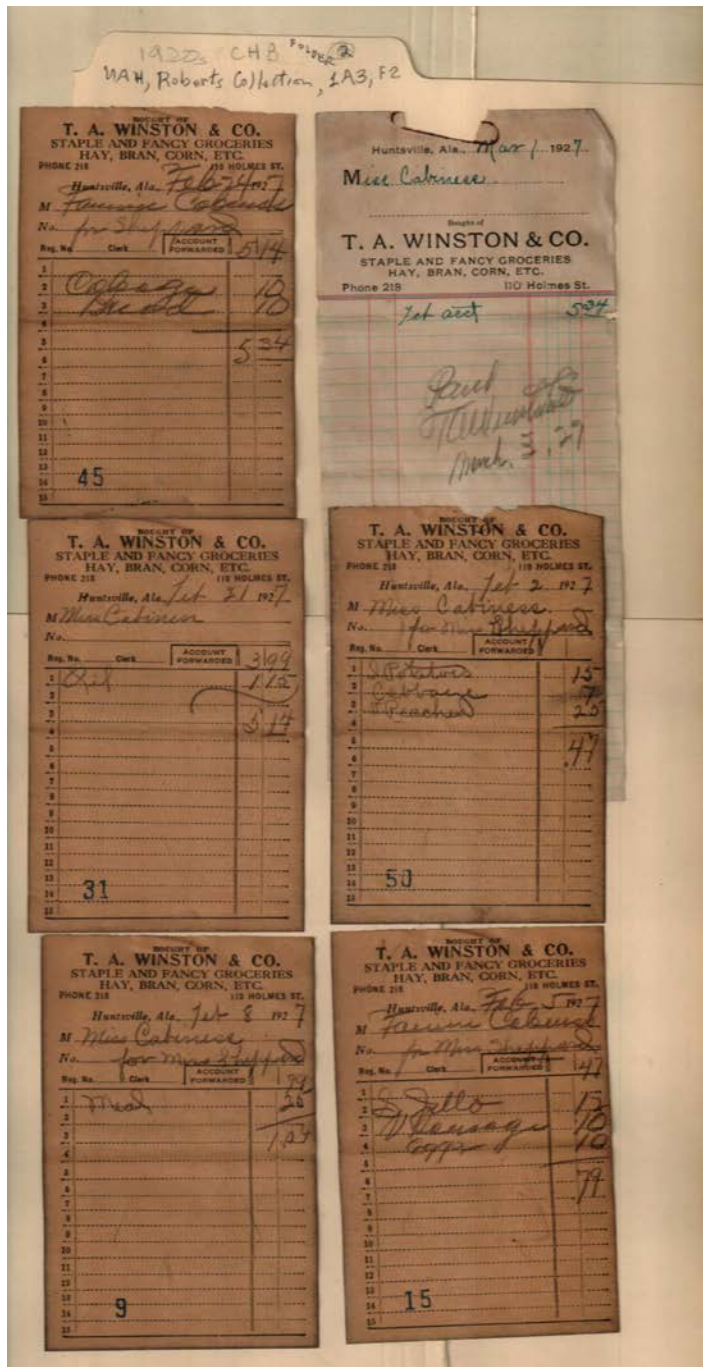 1920s CHB FOLDER 2
UAH, Roberts Collection, 1A3, F2
BOUGHT OF
T. A. WINSTON & CO.
STAPLE AND FANCY GROCERIES
HAY, BRAN, CORN, ETC.
PHONE 218 110 HOLMES ST.
Huntsville, Ala. Feb 24 1927
M Fannie
No. for Sheppard
Reg. No. Clerk ACCOUNT FORWARDED 5 14
1
2 10
3 Bread 10
4
5 5 34
6
7
8
9
10
11
12
13
14
15
45
Huntsville, Ala., Mar 1 1927.
Miss Cabiness
Bought of
T. A. WINSTON & CO.
STAPLE AND FANCY GROCERIES
HAY, BRAN, CORN, ETC.
Phone 218 110 Holmes St.
Feb acct 534
Paid
TA Winston
March, 3, 27
BOUGHT OF
T. A. WINSTON & CO.
STAPLE AND FANCY GROCERIES
HAY, BRAN, CORN, ETC.
PHONE 218 110 HOLMES ST.
Huntsville, Ala. Feb 21 1927
M Miss Cabiness
No.
Reg. No. Clerk ACCOUNT FORWARDED 3 99
1 1 15
2
3 5 14
4
5
6
7
8
9
10
11
12
13
14
15
31
BOUGHT OF
T. A. WINSTON & CO.
STAPLE AND FANCY GROCERIES
HAY, BRAN, CORN, ETC.
PHONE 218 110 HOLMES ST.
Huntsville, Ala. Feb 2 1927
M Miss Cabiness.
No. for Miss Sheppard
Reg. No. Clerk ACCOUNT FORWARDED
1 Potatoes 15
2 Cabbage 7
3 Peaches 25
4
5
6 .47
7
8
9
10
11
12
13
14
15
50
BOUGHT OF
T. A. WINSTON & CO.
STAPLE AND FANCY GROCERIES
HAY, BRAN, CORN, ETC.
PHONE 218 110 HOLMES ST.
Huntsville, Ala. Feb 8 1927
M Miss Cabiness
No. for Miss Sheppard
Reg. No. Clerk ACCOUNT FORWARDED 79
1 Meal 25
2
3 1.04
4
5
6
7
8
9
10
11
12
13
14
15
9
BOUGHT OF
T. A. WINSTON & CO.
STAPLE AND FANCY GROCERIES
HAY, BRAN, CORN, ETC.
PHONE 218 110 HOLMES ST.
Huntsville, Ala. Feb 5 1927
M Fannie
No. for Miss Sheppard
Reg. No. Clerk ACCOUNT FORWARDED 47
1
2 Jello 12
3 Sausage 10
4 10
5
6 79
7
8
9
10
11
12
13
14
15
15